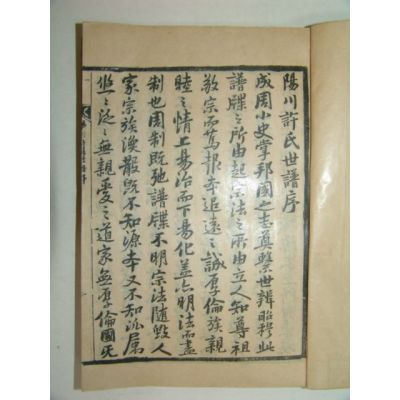 陽川許氏世譜序
成周小史掌邦國之志奠繫世辨昭穆此
譜牒之所由起宗法之所由立人知尊祖
敎宗而篤報本追遠之誠厚倫族親
睦之情上易治而下易化盖亦明法而盡
制也周制旣弛譜牒不明宗法隨毁人
家宗族渙散旣不知源本又不知派屬
悠悠泛泛無親愛之道家無厚倫國无